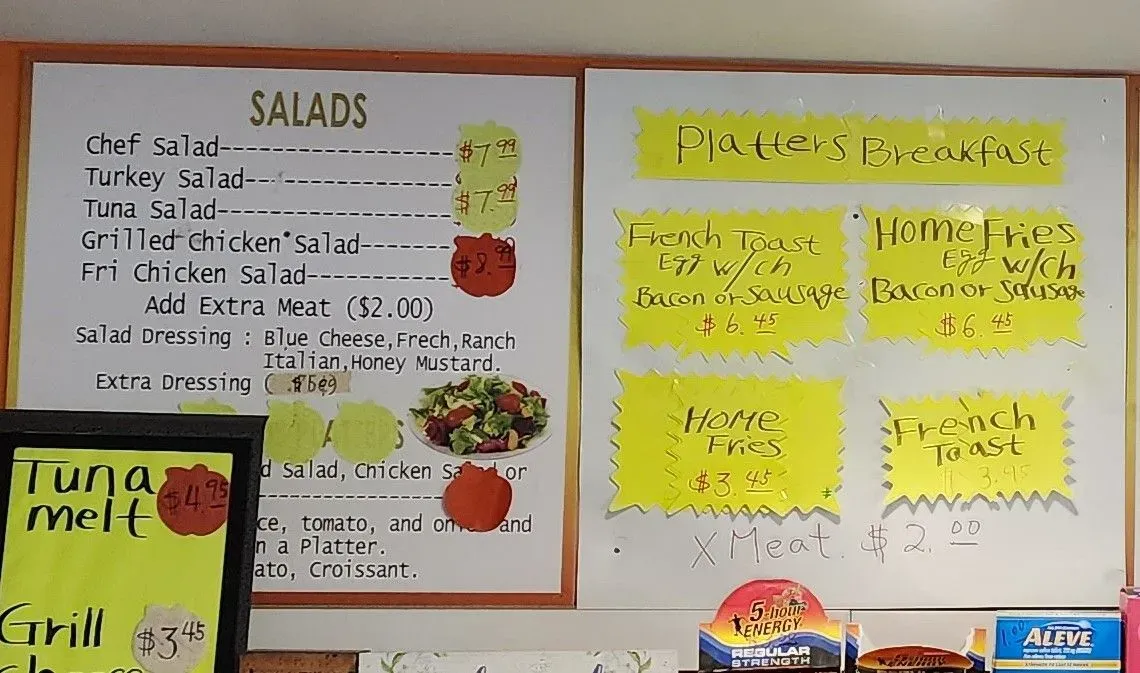 SALADS
Chef Salad------------------ $7.99
Turkey Salad--
Tuna Salad------------------ $7.99
Grilled Chicken Salad-------
Fri Chicken Salad----------- $8.99
Add Extra Meat ($2.00)
Salad Dressing : Blue Cheese,Frech,Ranch
Italian,Honey Mustard.
Extra Dressing (
d Salad, Chicken or
ce, tomato, and and
n a Platter.
ato, Croissant.
Tuna
melt
$4.95
Grill
$3.45
Platters Breakfast
French Toast
Egg w/ch
Bacon or Sausage
$6.45
Home Fries
Egg w/ch
Bacon or Sausage
$6.45
Home
Fries
$3.45
French
Toast
$3.45
X Meat. $2.00
5-hour
ENERGY
REGULAR
STRENGTH
1.00
ALEVE